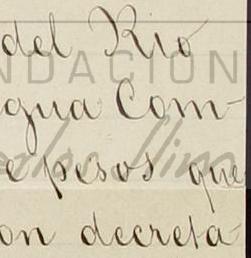 del Rio
NDACION
gua Com-
e pesos que
on decreta